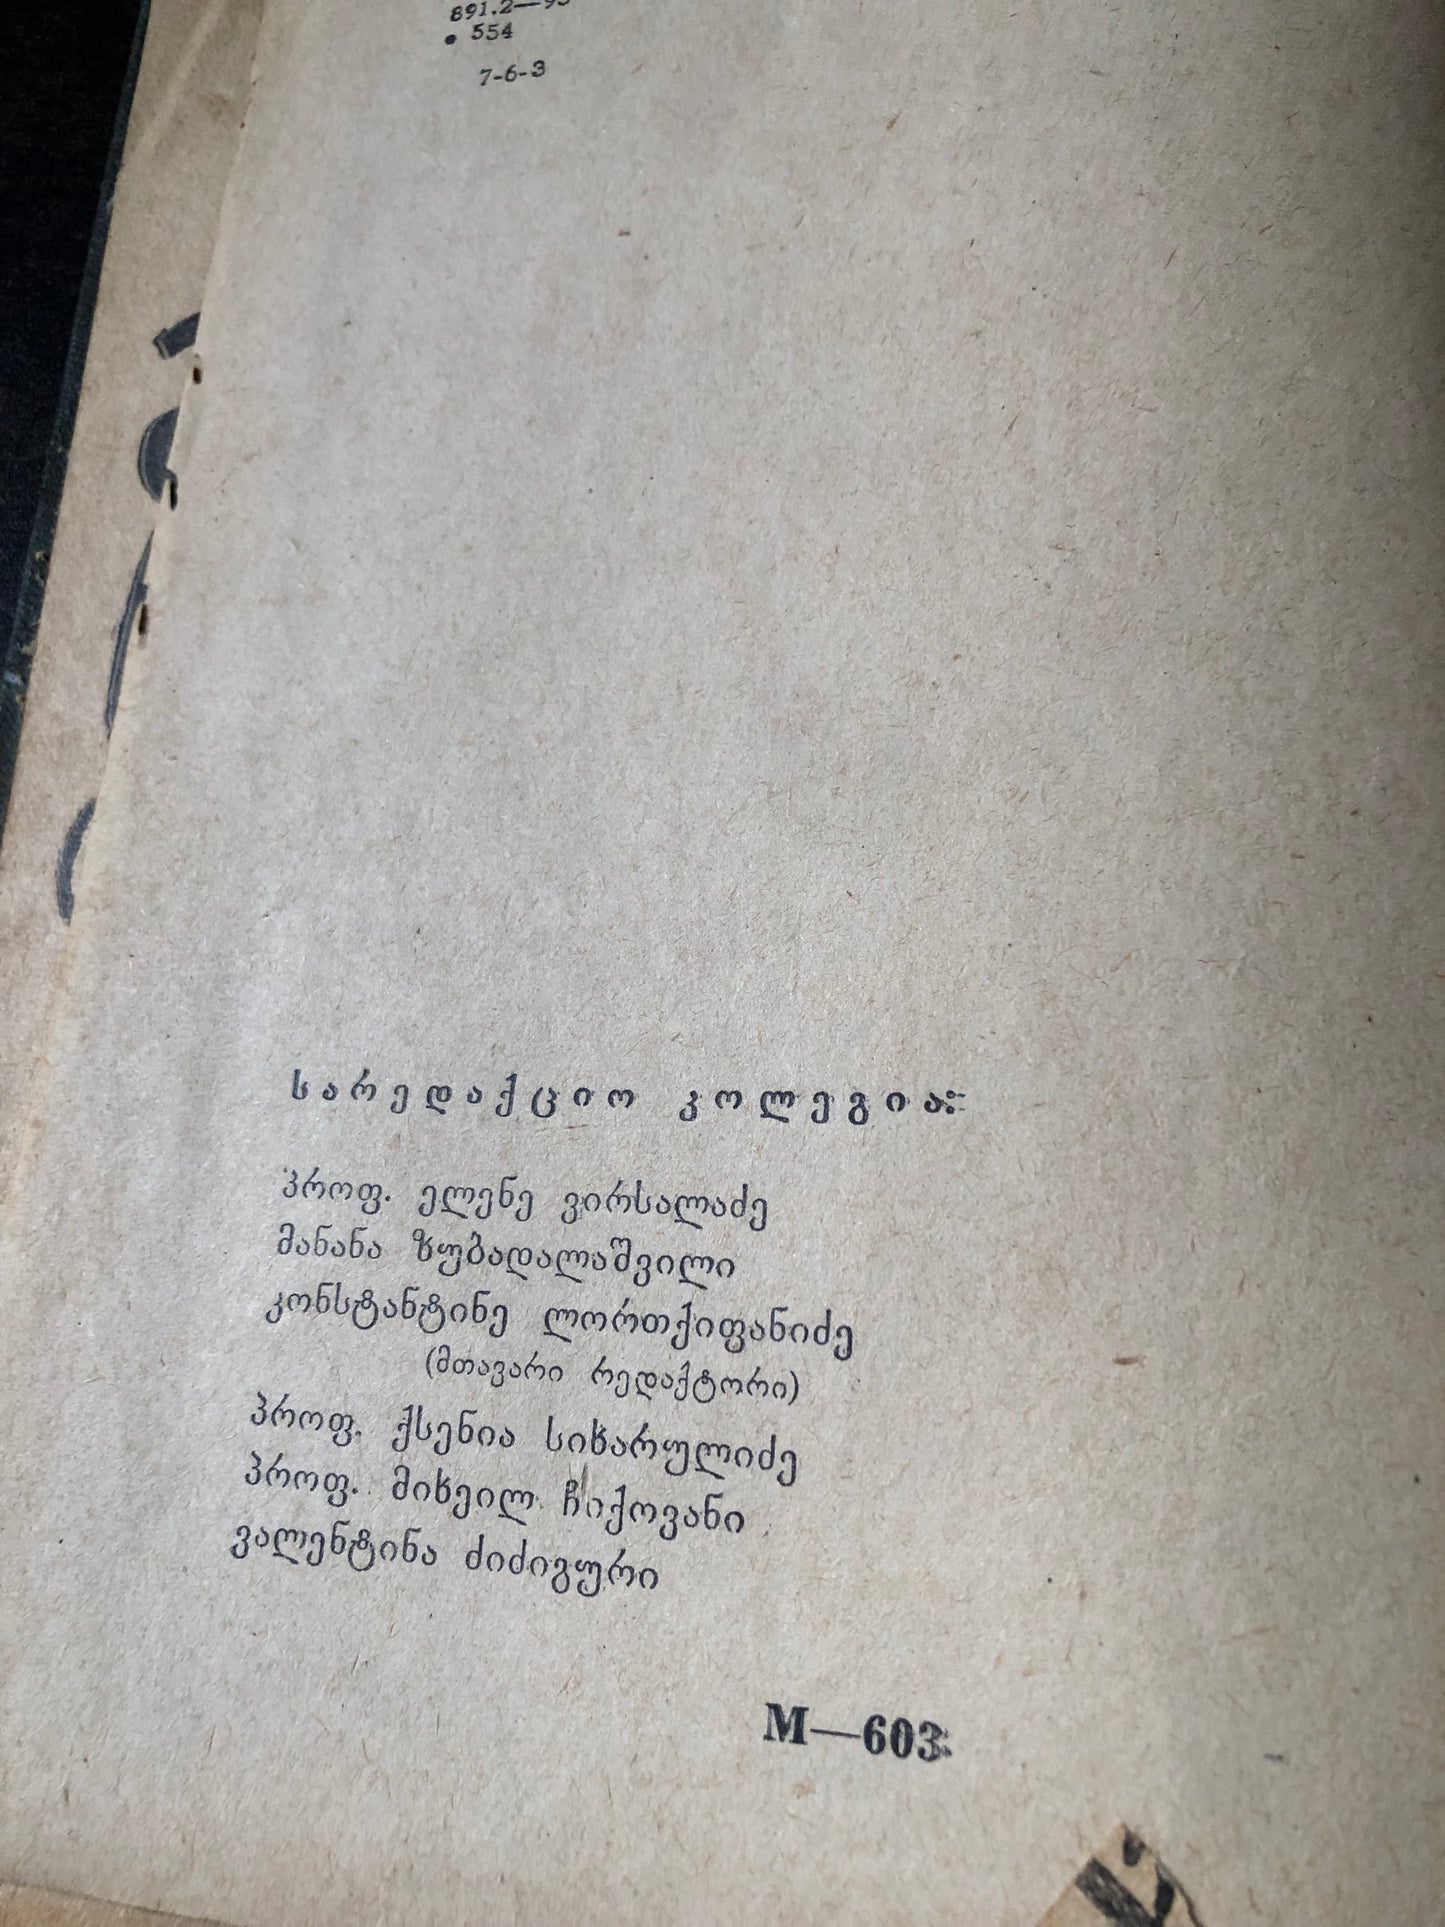 • 554
7-6-3
სარედაქციო კოლეგია:
პროფ. ელენე ვირსალაძე
მანანა ზუბადალაშვილი
კონსტანტინე ლორთქიფანიძე
(მთავარი რედაქტორი)
პროფ. ქსენია სიხარულიძე
პროფ. მიხეილ ჩიქოვანი
ვალენტინა ძიძიგური
M—603